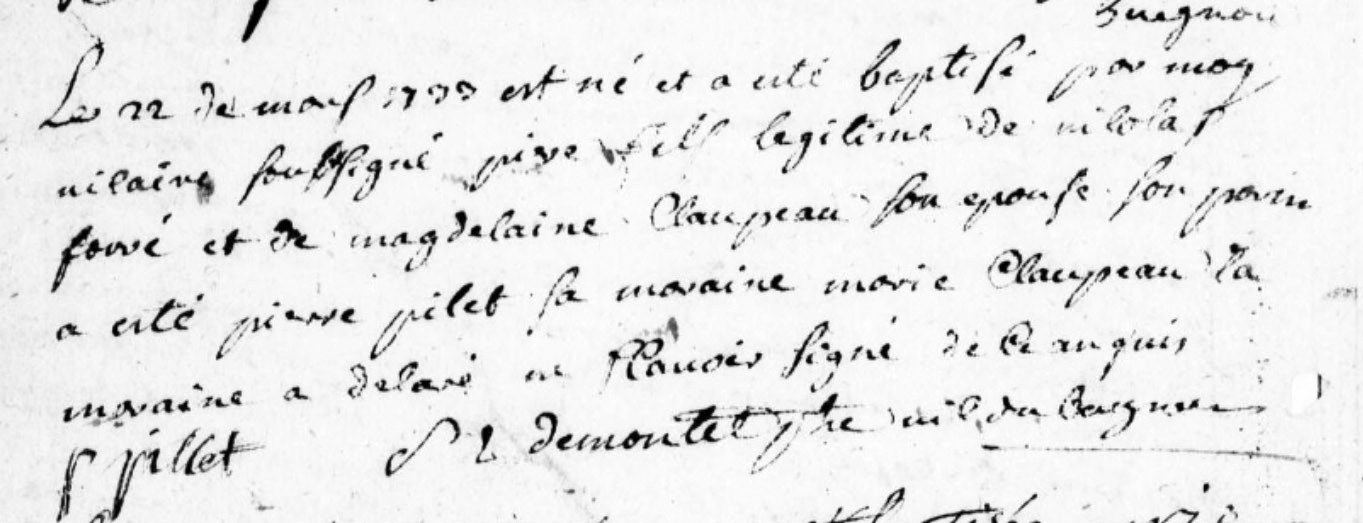 Le 22 de mars 1733 est né et a eté baptisé par moy
vicaire soussigné pierre fils legitime de nicolas
forré et de magdelaine Claupeau son epouse son parin
a esté pierre pilet sa maraine marie Claupeau la
maraine a delaré ne scavoir signé de ce anquis
p pillet demontet ptre vic. du